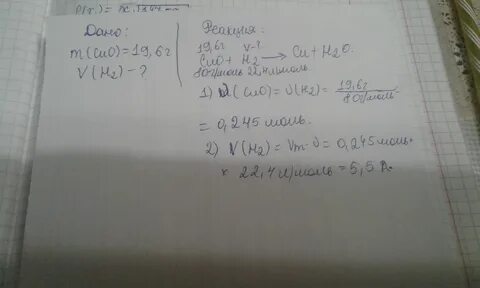 Дано:
m(CuO)=19,6г
V(H₂)-?
Реакция:
19,6г V-?
CuO + H₂ → Cu + H₂O.
80г/моль 22,4л/моль
1) ν(CuO)=ν(H₂)= 19,6г / 80г/моль
= 0,245 моль.
2) V(H₂)=Vm·ν=0,245моль·
× 22,4л/моль=5,5л.